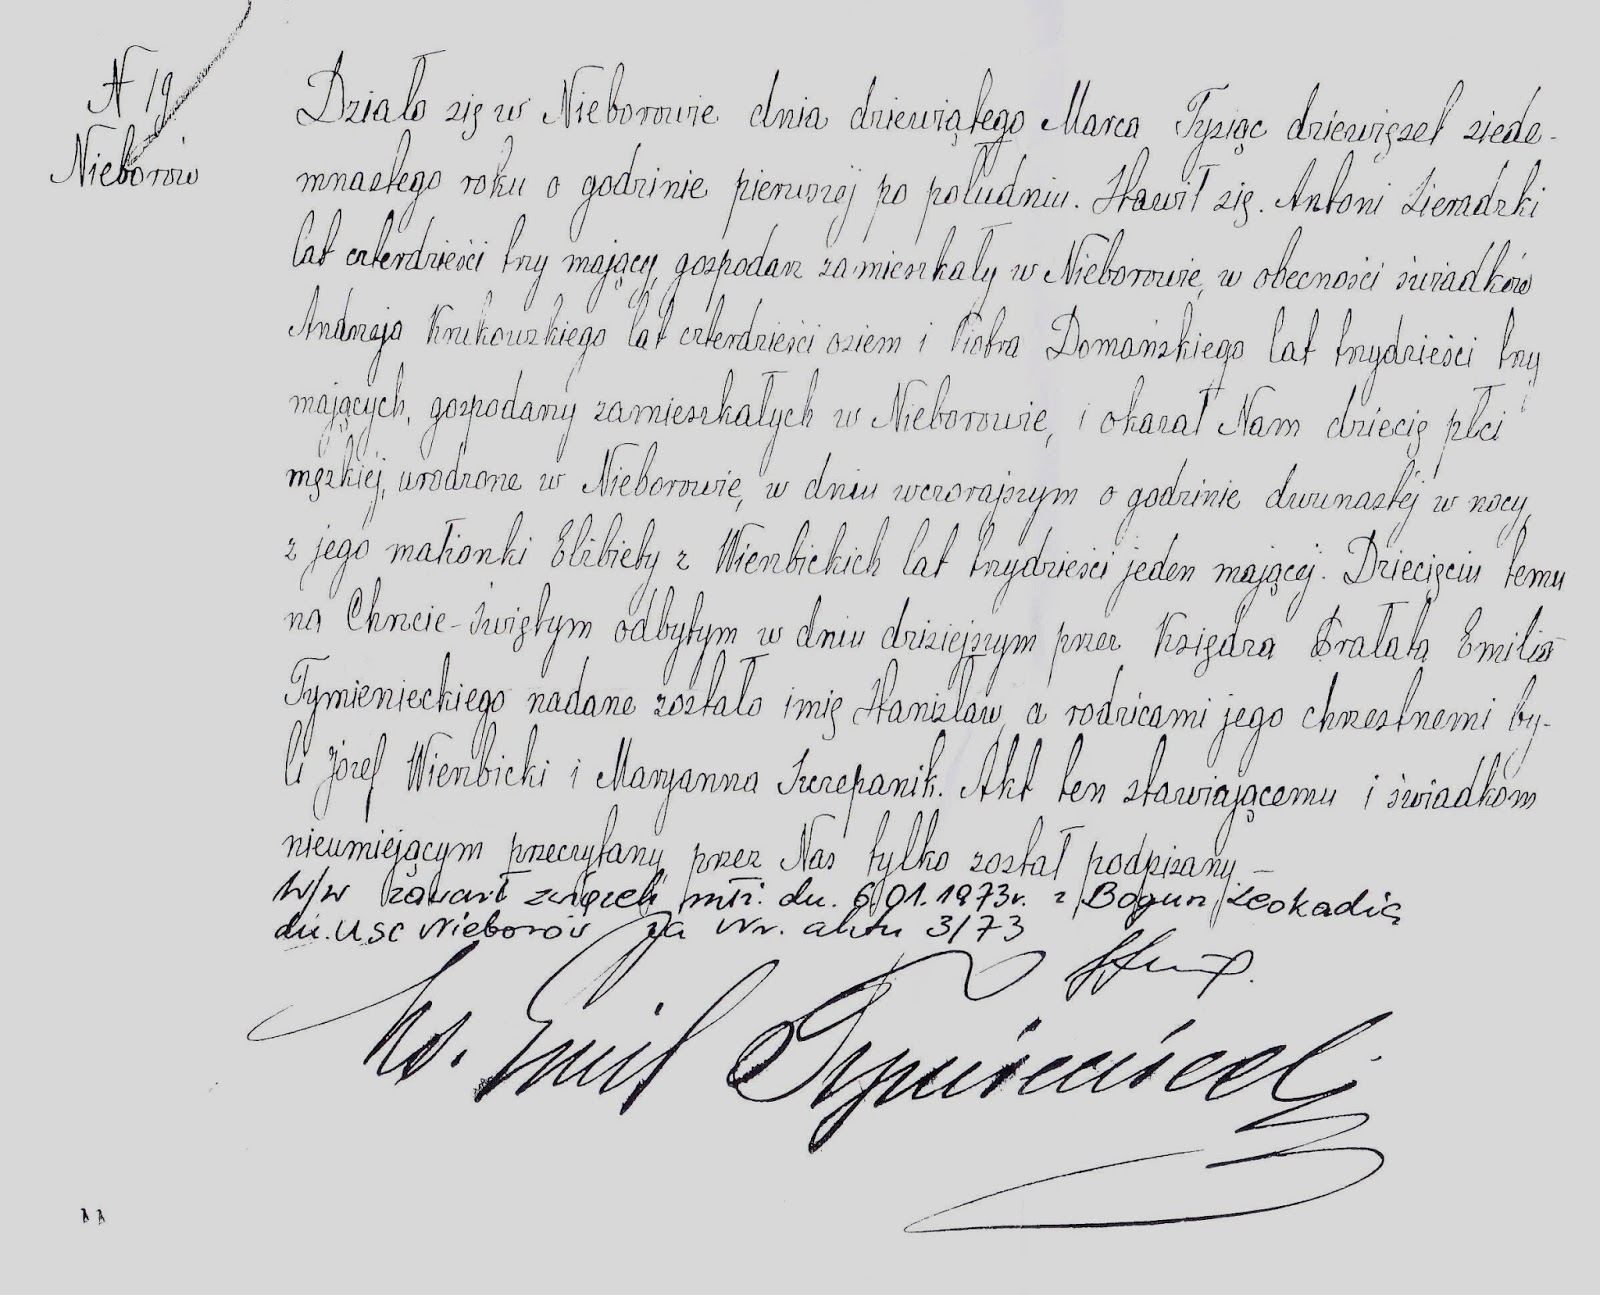 N 19
Nieborów
Działo się w Nieborowie dnia dziewiątego Marca Tysiąc dziewięset siede-
mnastego roku o godzinie pierwszej po południu. Stawił się. Antoni Sieradzki
lat czterdzieści trzy mający, gospodarz zamieszkały w Nieborowie, w obecności świadków
Andrzeja Krukowskiego lat czterdzieści osiem i Piotra Domańskiego lat trzydzieści trzy
mających, gospodarzy zamieszkałych w Nieborowie, i okazał Nam dziecię płci
męzkiej, urodzone w Nieborowie, w dniu wczorajszym o godzinie dwunastéj w nocy,
z jego małżonki Elżbiety z Wierzbickich lat trzydzieści jeden mającej. Dziecięciu temu
na Chrzcie-świętym odbytym w dniu dzisiejszym przez Księdza Prałata Emilia
Tymienieckiego nadane zostało imię Stanisław, a rodzicami jego chrzestnemi by-
li Józef Wierzbicki i Maryanna Szczepanik. Akt ten stawiającemu i świadkom
nieumiejącym przeczytany, przez Nas tylko został podpisany -
W/w zawarł związek młż. dn. 6.01.1973r. z Bogusz Leokadią
dn. USC Nieborów za Nr. aktu 3/73
Ks. Emil Tymieniecki